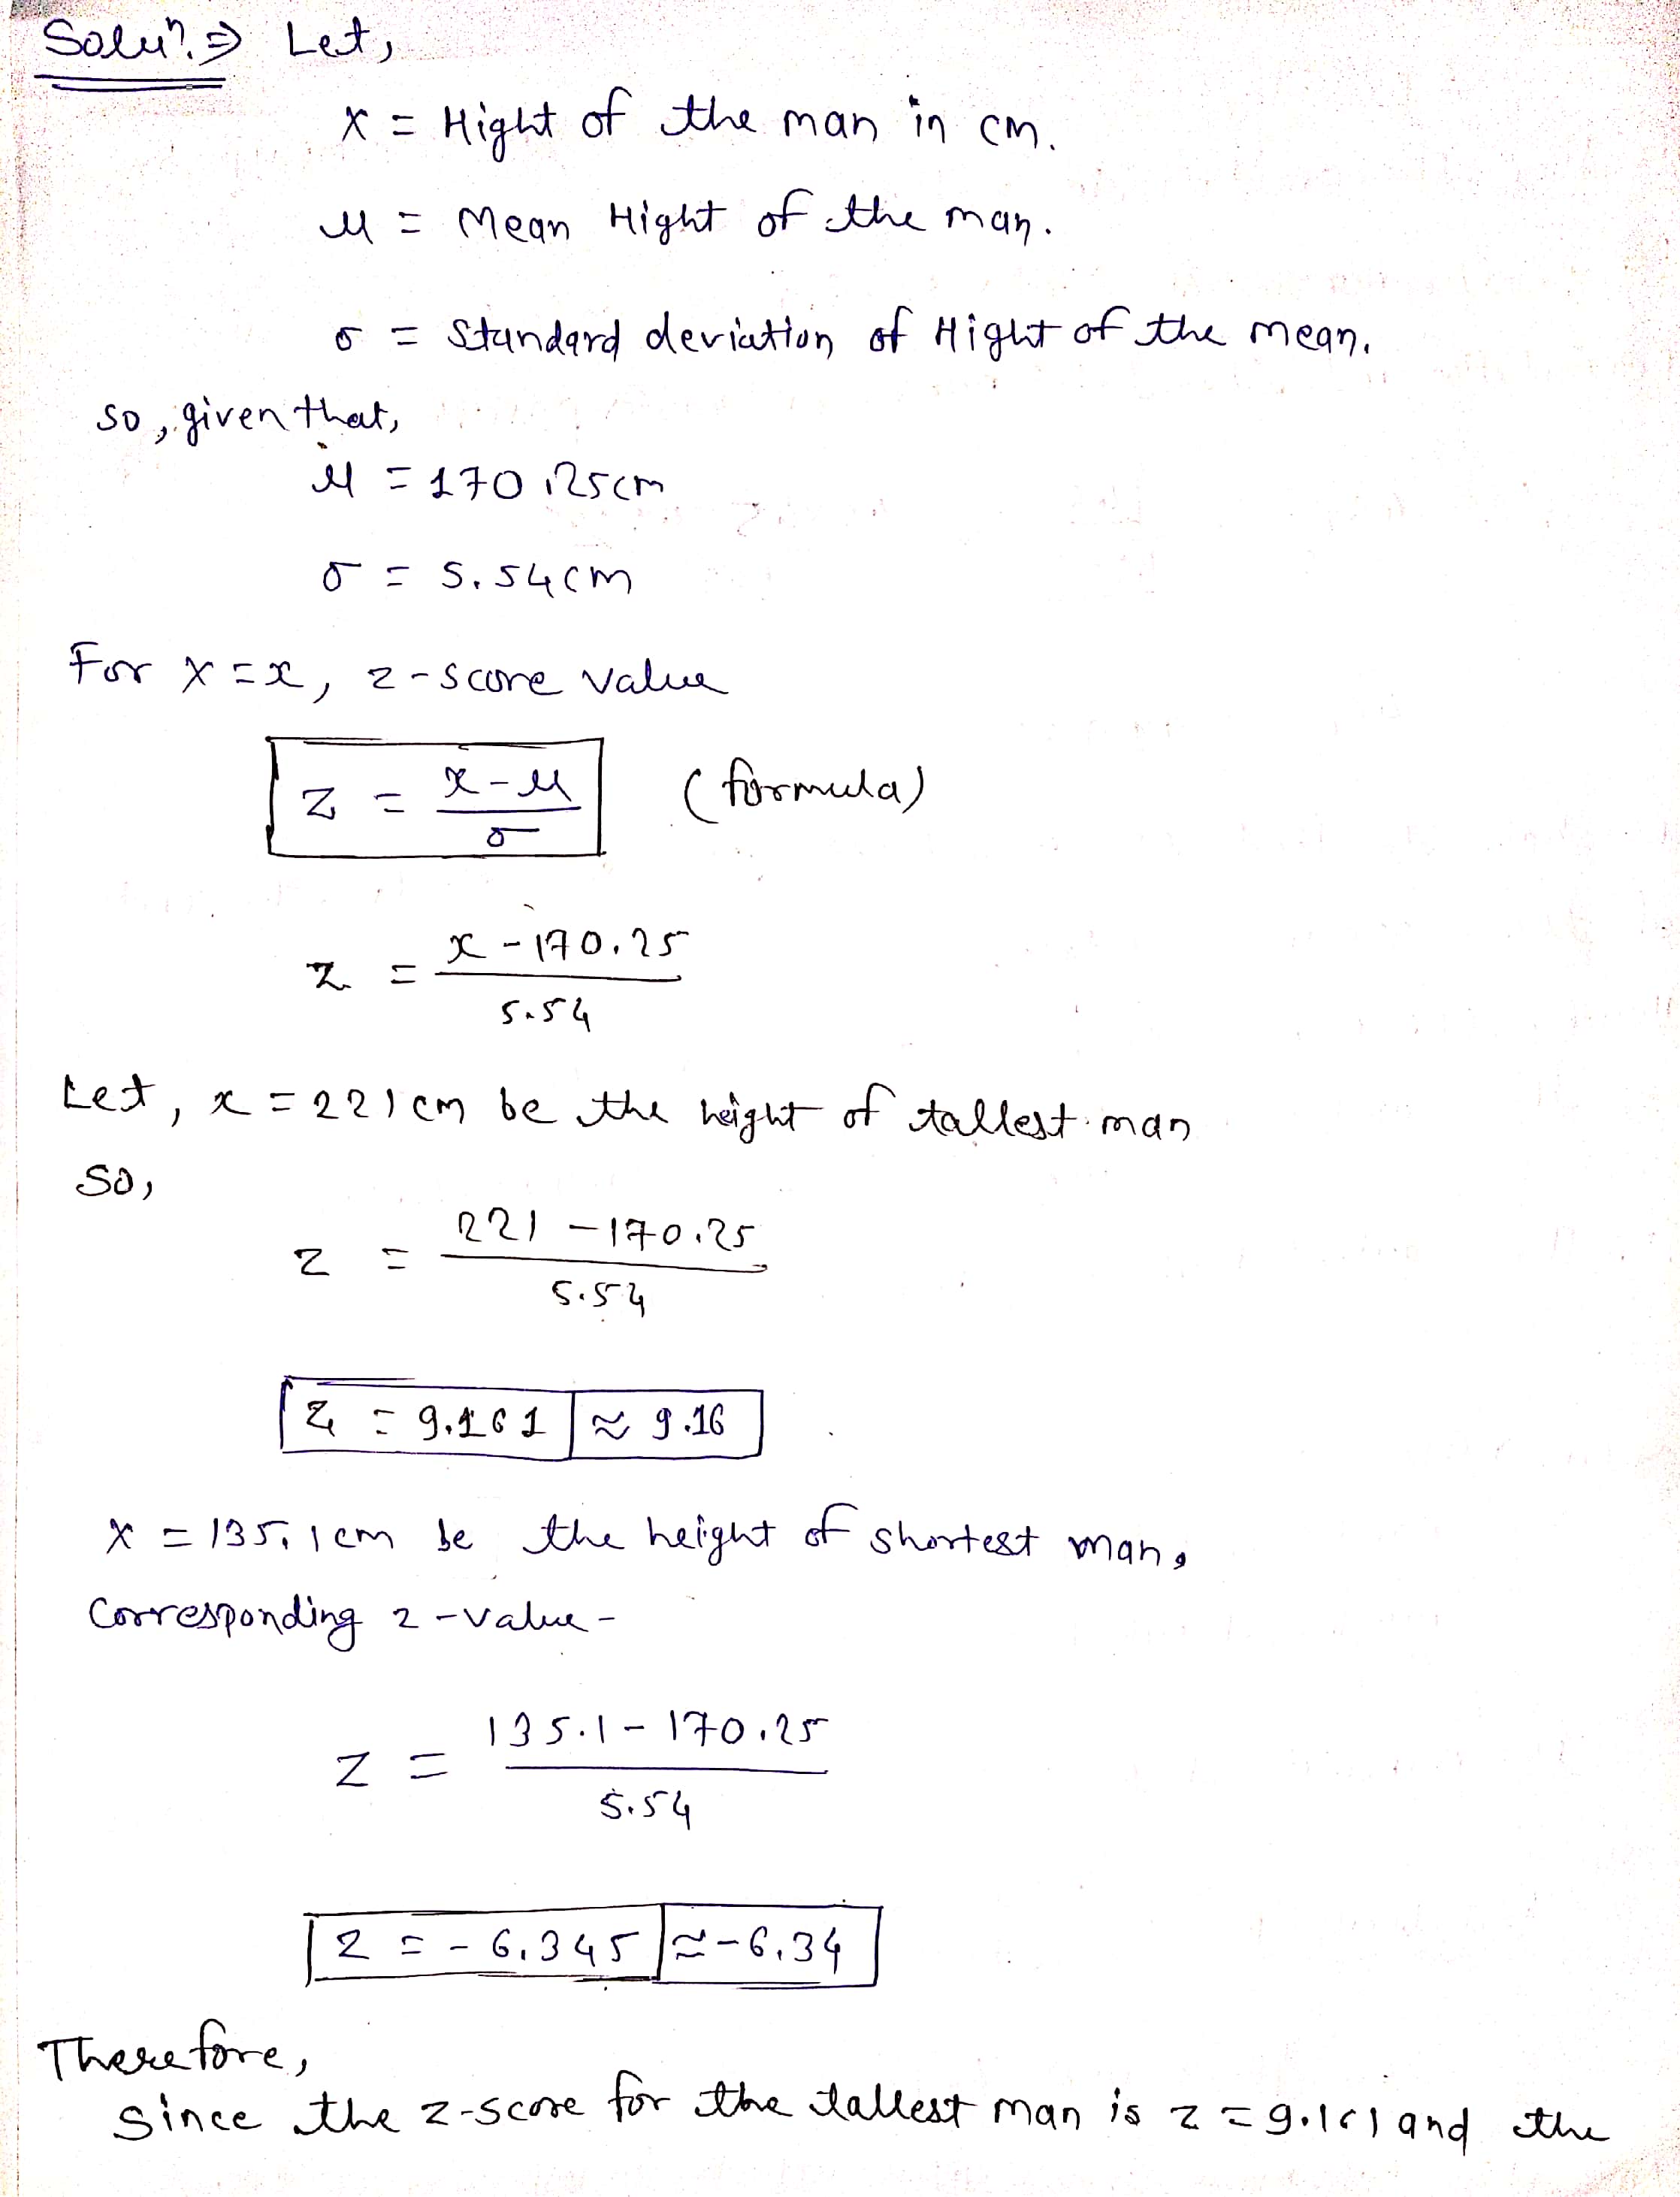 Solun. ⇒ Let,
X = Hight of the man in cm.
μ = Mean Hight of the man.
σ = Standard deviation of Hight of the mean.
so, given that,
μ = 170.25cm
σ = 5.54cm
For X = x, z-score value
z = x-μ / σ (formula)
z = x - 170.25 / 5.54
Let, x = 221cm be the height of tallest man
So,
z = 221 - 170.25 / 5.54
z = 9.161 ≈ 9.16
X = 135.1cm be the height of shortest man,
Corresponding z-value-
z = 135.1 - 170.25 / 5.54
z = -6.345 ≈ -6.34
Therefore,
Since the z-score for the tallest man is z = 9.161 and the